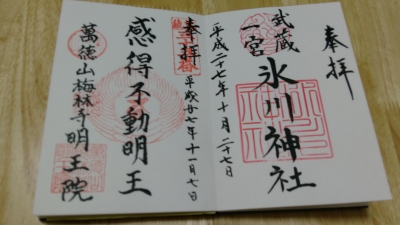 奉拝
武蔵
一宮
氷川神社
平成二十七年十月二十七日
奉拝
平成廿七年十一月七日
感得不動明王
萬徳山梅林寺明王院